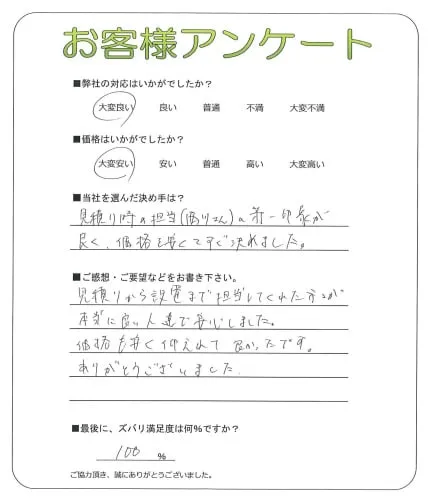 お客様アンケート
■弊社の対応はいかがでしたか?
大変良い 良い 普通 不満 大変不満
■価格はいかがでしたか?
大変安い 安い 普通 高い 大変高い
■当社を選んだ決め手は?
見積り時の担当(西川さん)の第一印象が
良く、価格も安くてすぐ決めました。
■ご感想・ご要望などをお書き下さい。
見積りから設置まで担当してくれた方々が
本当に良い人達で安心しました。
価格も安く抑えれて良かったです。
ありがとうございました。
■最後に、ズバリ満足度は何%ですか?
100 %
ご協力頂き、誠にありがとうございました。